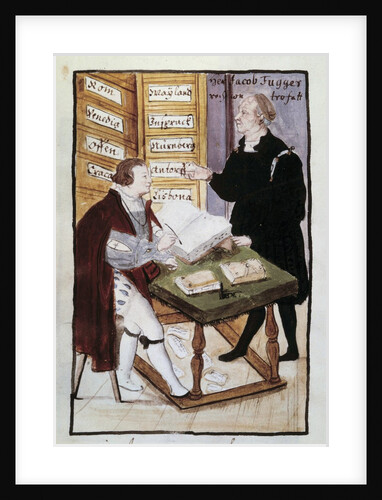 Rom
Venedig
Offen
Craca
Mayland
Inspruck
Nürnberg
Antorff
Lisbona
Her Jacob Fugger